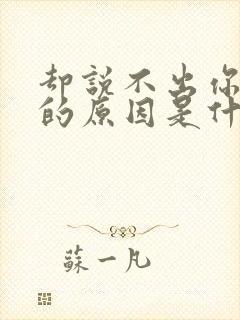 却説不出你
的原因是什
蘇一凡